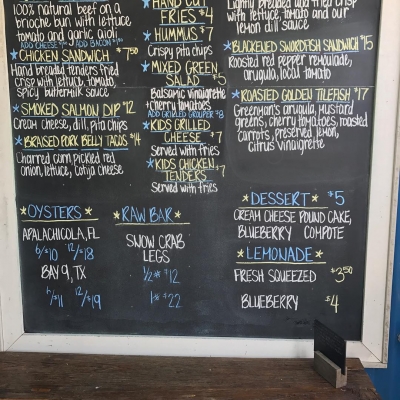 100% natural beef on a
brioche bun with lettuce
tomato and garlic aioli
ADD CHEESE ADD BACON
*CHICKEN SANDWICH $7.50
Hand breaded tenders fried
crisp with lettuce, tomato,
spicy buttermilk sauce
*SMOKED SALMON DIP $12
Cream cheese, dill, pita chips
*BRAISED PORK BELLY TACOS $14
Charred corn, pickled red
onion, lettuce, cotija cheese
*OYSTERS*
APALACHICOLA, FL
6/$10 12/$18
BAY 9, TX
6/$11 12/$19
*HAND CUT
FRIES $4
*HUMMUS $7
Crispy pita chips
*MIXED GREEN
SALAD $5
Balsamic vinaigrette
+ cherry tomatoes
ADD GRILLED GROUPER $8
*KIDS GRILLED
CHEESE $7
Served with fries
*KIDS CHICKEN
TENDERS $7
Served with fries
*RAW BAR*
SNOW CRAB
LEGS
1/2# $12
1# $22
Lightly breaded and fried crisp
with lettuce, tomato and our
lemon dill sauce
*BLACKENED SWORDFISH SANDWICH $15
Roasted red pepper remoulade,
arugula, local tomato
*ROASTED GOLDEN TILEFISH $17
Greenman's arugula, mustard
greens, cherry tomatoes, roasted
carrots, preserved lemon,
citrus vinaigrette
*DESSERT* $5
CREAM CHEESE POUND CAKE,
BLUEBERRY COMPOTE
*LEMONADE*
FRESH SQUEEZED $3.50
BLUEBERRY $4